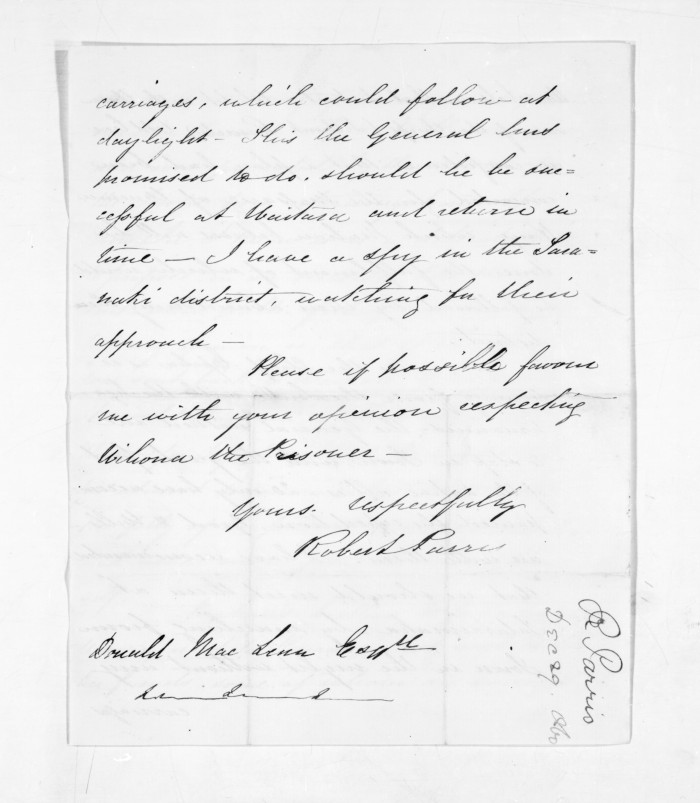 carriages, which could follow at
daylight - This the General has
promised to do, should he be suc=
cessful at Waitara and return in
time — I have a spy in the Tara=
naki district, watching for their
approach —
Please if possible favour
me with your opinion respecting
Wihona the Prisoner —
Yours respectfully
Robert Parris
Donald Mac Lean Esqre
R Parris
Dec 29. 1860